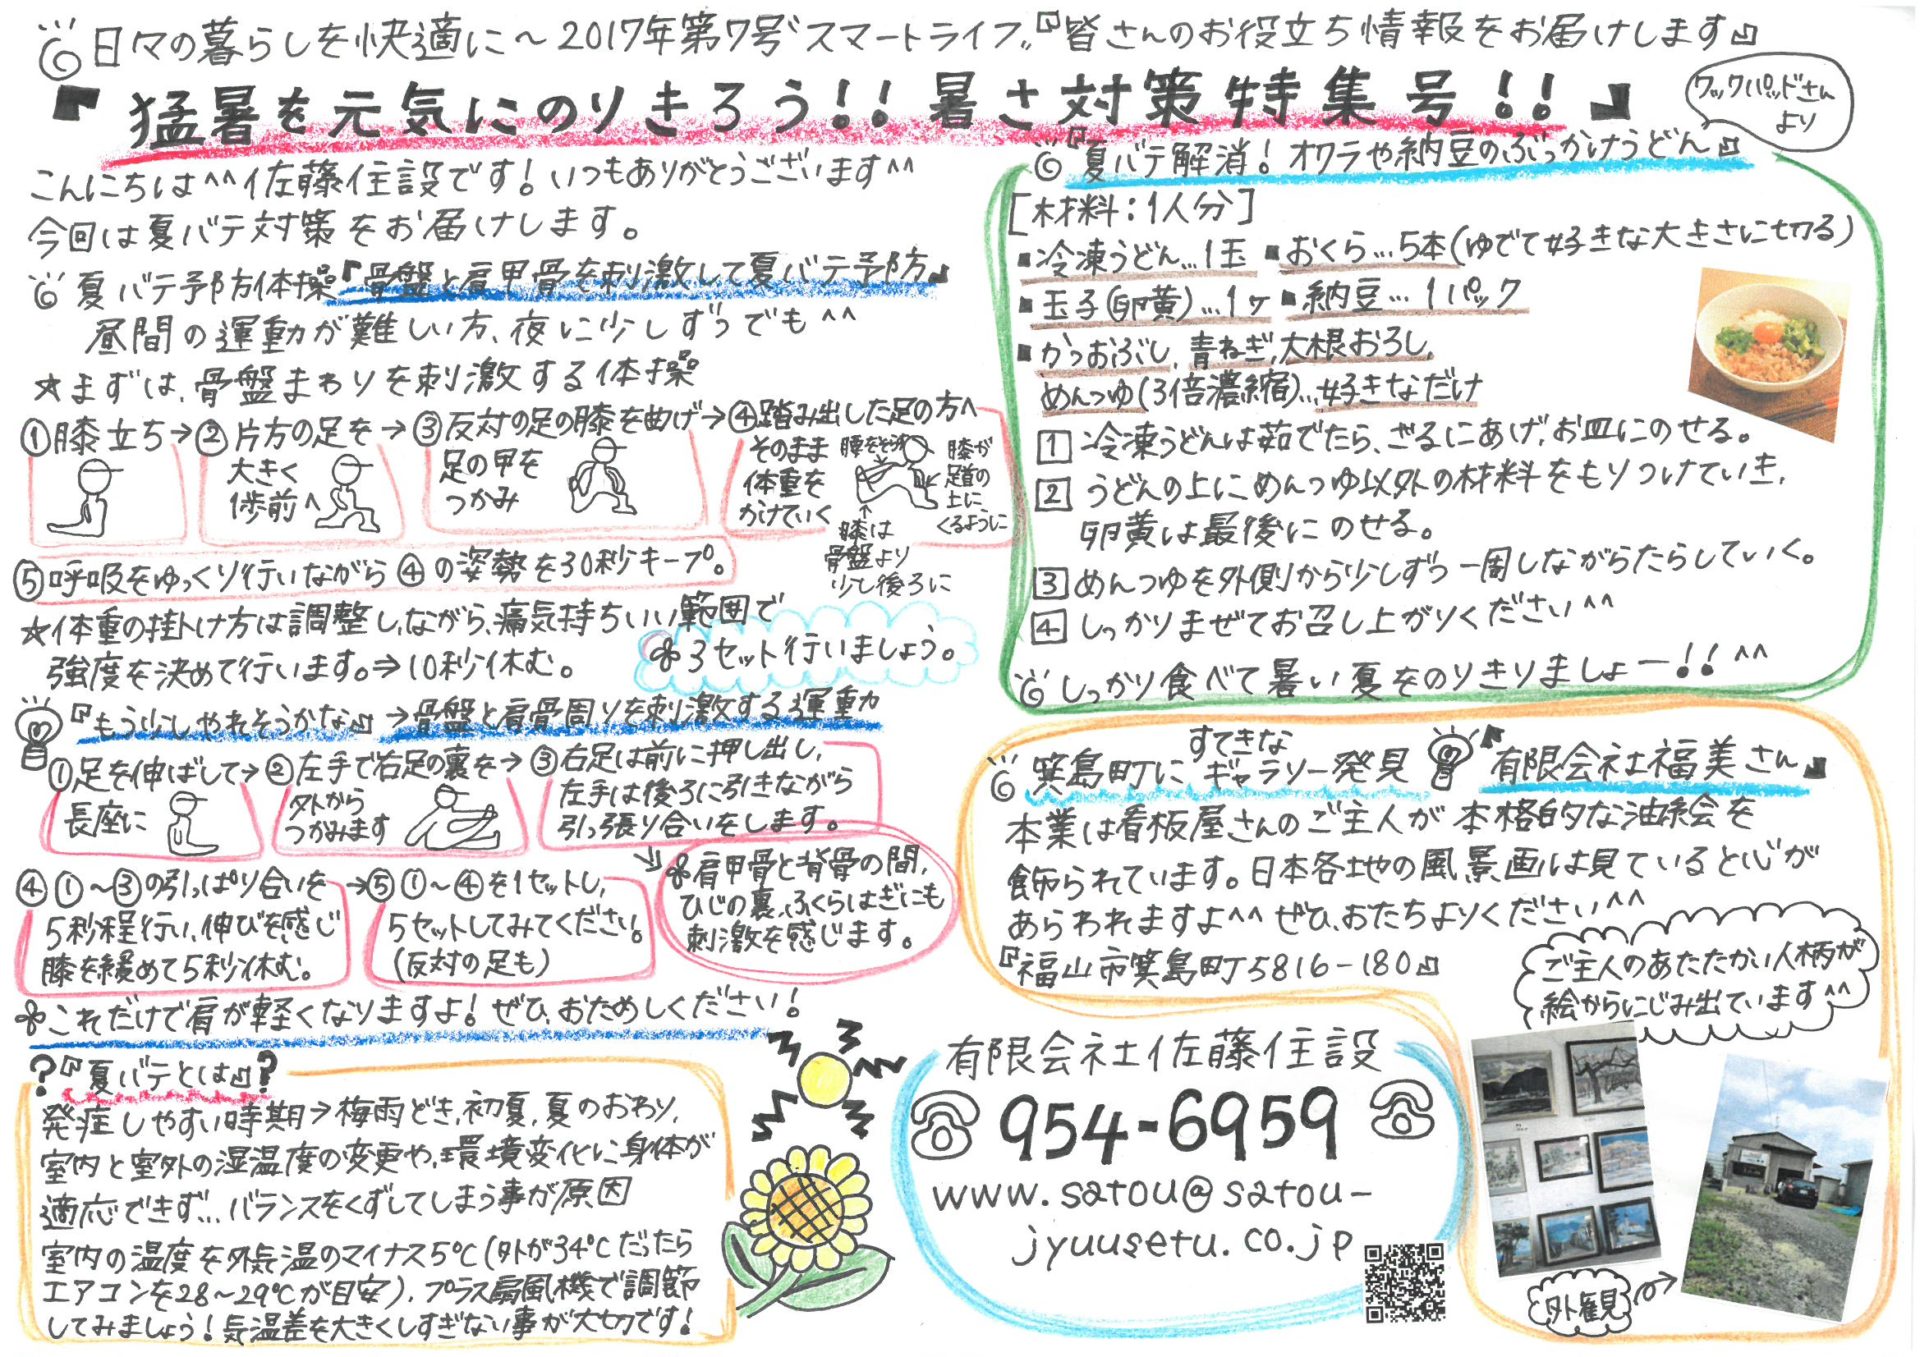 日々の暮らしを快適に～2017年第7号〝スマートライフ〟『皆さんのお役立ち情報をお届けします』
『猛暑を元気にのりきろう!!暑さ対策特集号!!』
クックパッドさん
より
こんにちは^^佐藤住設です!いつもありがとうございます^^
今回は夏バテ対策をお届けします。
夏バテ予防体操『骨盤と肩甲骨を刺激して夏バテ予防』
昼間の運動が難しい方、夜に少しずつでも^^
☆まずは、骨盤まわりを刺激する体操
①膝立ち→②片方の足を→③反対の足の膝を曲げ→④踏み出した足の方へ
大きく
1歩前へ
足の甲を
つかみ
そのまま
体重を
かけていく
腰をそらす
膝が
足首の
上に
くるように
膝は
骨盤より
少し後ろに
⑤呼吸をゆっくり行いながら④の姿勢を30秒キープ。
☆体重の掛け方は調整しながら、痛気持ちいい範囲で
強度を決めて行います。⇒10秒休む。
3セット行いましょう。
『もう少しやれそうかな』→骨盤と肩骨周りを刺激する運動
①足を伸ばして→②左手で右足の裏を→③右足は前に押し出し、
長座に
外から
つかみます
左手は後ろに引きながら
引っ張り合いをします。
④①～③の引っぱり合いを→⑤①～④を1セットし、
5秒程行い、伸びを感じ
膝を緩めて5秒休む。
5セットしてみてください。
(反対の足も)
肩甲骨と背骨の間、
ひじの裏、ふくらはぎにも
刺激を感じます。
これだけで肩が軽くなりますよ!ぜひ、おためしください!
?『夏バテとは』?
発症しやすい時期→梅雨どき、初夏、夏のおわり、
室内と室外の湿温度の変更や、環境変化に身体が
適応できず…バランスをくずしてしまう事が原因
室内の温度を外気温のマイナス5℃(外が34℃だったら
エアコンを28～29℃が目安)、プラス扇風機で調節
してみましょう!気温差を大きくしすぎない事が大切です!
『夏バテ解消!オクラや納豆のぶっかけうどん』
[材料:1人分]
▪冷凍うどん…1玉 ▪おくら…5本(ゆでて好きな大きさに切る)
▪玉子(卵黄)…1ヶ ▪納豆…1パック
▪かつおぶし、青ねぎ、大根おろし、
めんつゆ(3倍濃縮)…好きなだけ
1 冷凍うどんは茹でたら、ざるにあげ、お皿にのせる。
2 うどんの上にめんつゆ以外の材料をもりつけていき、
卵黄は最後にのせる。
3 めんつゆを外側から少しずつ一周しながらたらしていく。
4 しっかりまぜてお召し上がりください^^
しっかり食べて暑い夏をのりきりましょー!!^^
箕島町にすてきなギャラリー発見『有限会社福美さん』
本業は看板屋さんのご主人が本格的な油絵を
飾られています。日本各地の風景画は見ていると心が
あらわれますよ^^ぜひ、おたちよりください^^
『福山市箕島町5816-180』
ご主人のあたたかい人柄が
絵からにじみ出ています^^
外観
有限会社佐藤住設
954-6959
www.satou@satou-
jyuusetu.co.jp